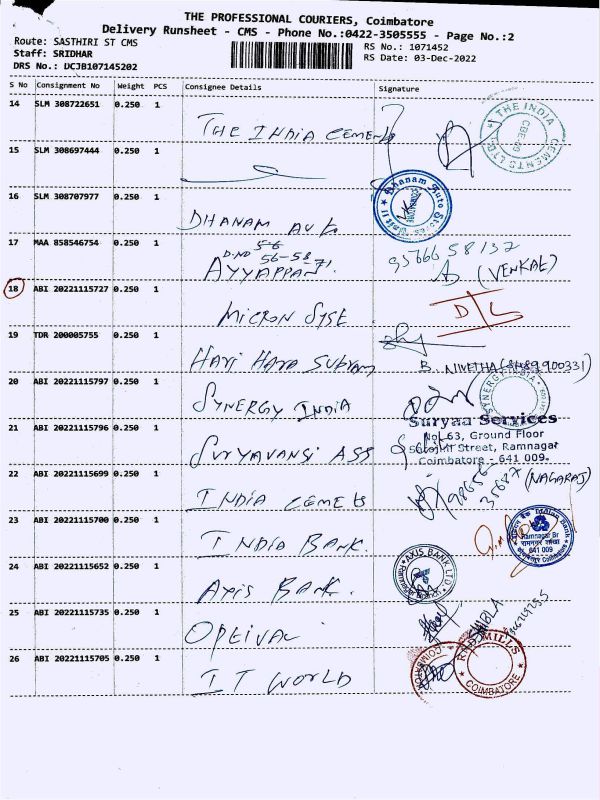 THE PROFESSIONAL COURIERS, Coimbatore
Delivery Runsheet - CMS - Phone No.:0422-3505555 - Page No.:2
Route: SASTHIRI ST CMS
Staff: SRIDHAR
DRS No.: DCJB107145202
RS No.: 1071452
RS Date: 03-Dec-2022
S No Consignment No Weight PCS Consignee Details Signature
14 SLM 308722651 0.250 1 THE INDIA CEMENTS
THE INDIA CEMENTS LTD.
15 SLM 308697444 0.250 1
16 SLM 308707977 0.250 1 DHANAM AUTO
Dhanam Auto Stores
17 MAA 858546754 0.250 1 D.NO 56-58
AYYAPPAN 9566658132
(VENKAT)
18 ABI 20221115727 0.250 1 MICRON SYSE D/L
19 TDR 200005755 0.250 1 HARI HARA SUBRAM B. NIVETHA (8489900331)
20 ABI 20221115797 0.250 1 SYNERGY INDIA
SYNERGY INDIA
21 ABI 20221115796 0.250 1 SURYAVANSI ASS
Suryaa Services
No. 63, Ground Floor
Street, Ramnagar
Coimbatore - 641 009.
22 ABI 20221115699 0.250 1 INDIA CEMENTS (NAGARAJ)
23 ABI 20221115700 0.250 1 INDIA BANK
Indian Bank
Ramnagar Br
641 009
24 ABI 20221115652 0.250 1 AXIS BANK.
AXIS BANK LTD.
25 ABI 20221115735 0.250 1 OPEIVAL
26 ABI 20221115705 0.250 1 IT WORLD
MILLS
COIMBATORE